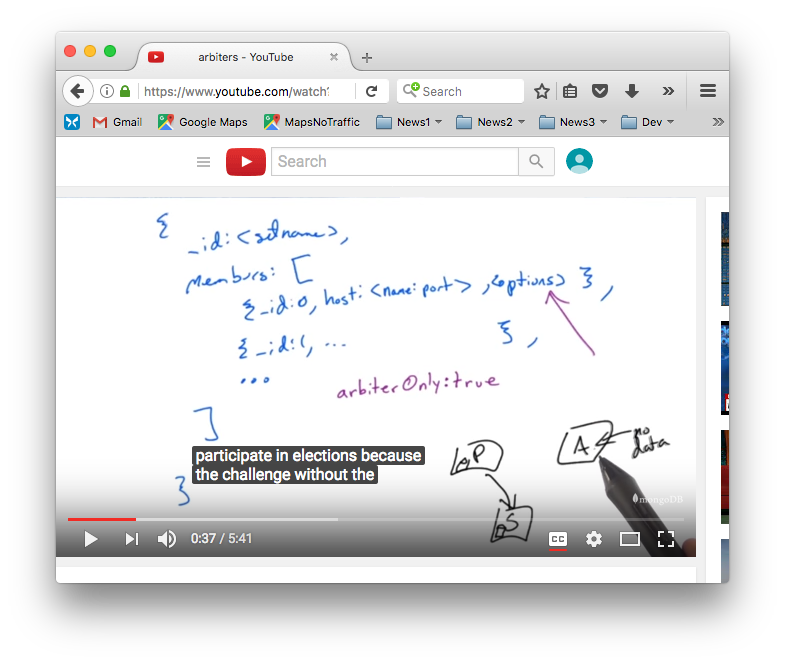 arbiters - YouTube
https://www.youtube.com/watch?
Search
Gmail
Google Maps
MapsNoTraffic
News1
News2
News3
Dev
Search
{
_id: <setname>,
members: [
{_id:0, host: <name:port> ,<options> } ,
{_id:1, ... } ,
...
arbiterOnly:true
]
participate in elections because
the challenge without the
}
P
S
A
no
data
mongoDB
0:37 / 5:41
CC